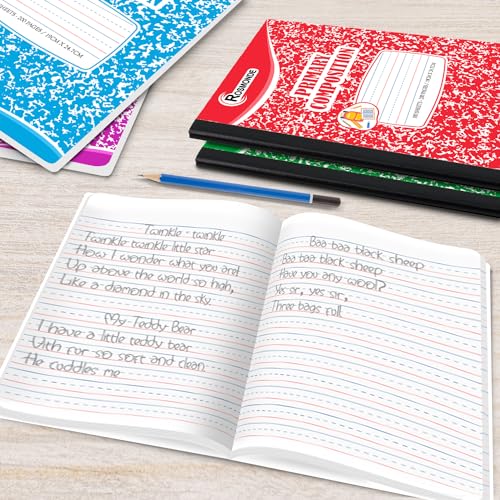 SHEETS / 200 PAGES / 19CM X 24.7CM
ROSMONDE
PRIMARY
COMPOSITION
Twinkle - twinkle
Twinkle twinkle little star
How I wonder what you are!
Up above the world so high,
Like a diamond in the sky.
My Teddy Bear
I have a little teddy bear
With fur so soft and clean.
He cuddles me
Baa baa black sheep
Baa baa black sheep
Have you any wool?
Yes sir, yes sir,
Three bags full.